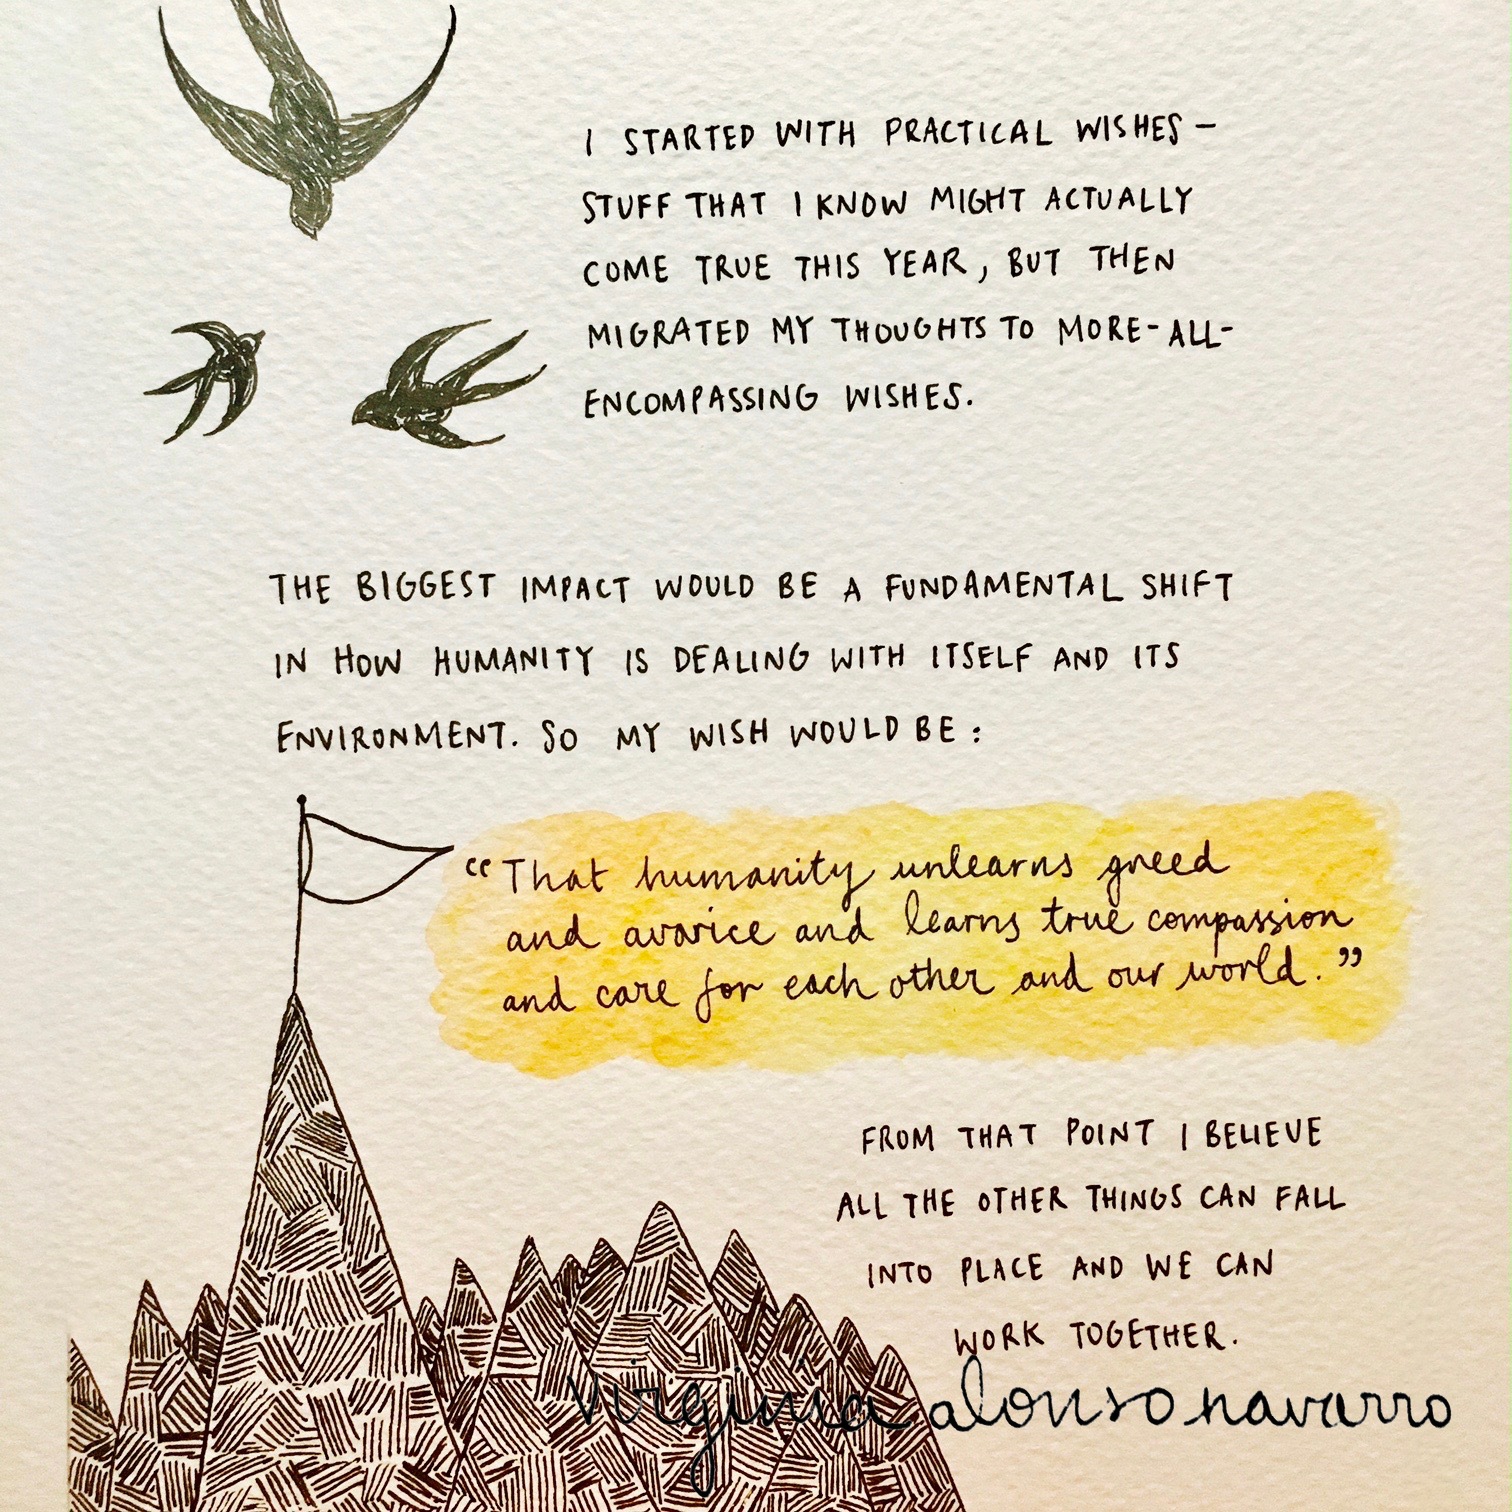 I STARTED WITH PRACTICAL WISHES –
STUFF THAT I KNOW MIGHT ACTUALLY
COME TRUE THIS YEAR, BUT THEN
MIGRATED MY THOUGHTS TO MORE-ALL-
ENCOMPASSING WISHES.
THE BIGGEST IMPACT WOULD BE A FUNDAMENTAL SHIFT
IN HOW HUMANITY IS DEALING WITH ITSELF AND ITS
ENVIRONMENT. SO MY WISH WOULD BE:
“That humanity unlearns greed
and avarice and learns true compassion
and care for each other and our world.”
FROM THAT POINT I BELIEVE
ALL THE OTHER THINGS CAN FALL
INTO PLACE AND WE CAN
WORK TOGETHER.
virginia alonso navarro